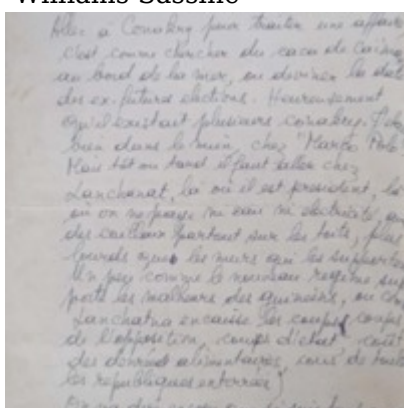 Williams Sassine
Aller à Conakry pour traiter une affaire
c'est comme chercher du caca de caïman
au bord de la mer, ou deviner la date
des ex-futures élections. Heureusement
qu'il existait plusieurs conakry.
bien dans le mien, chez "Marco Polo"
Mais tôt ou tard il faut aller chez
Lanchanat, là où il est président, là
où on ne paye ni eau ni électricité,
des cailloux partout sur les toits, plus
lourds que les murs qui les supportent
Un peu comme le nouveau régime sup
porte les malheurs des guinéens, ou
Lanchatna encaisse les coups, coups
de l'opposition, coups d'état, coût
des denrées alimentaires, cous de
les républiques enterrées)